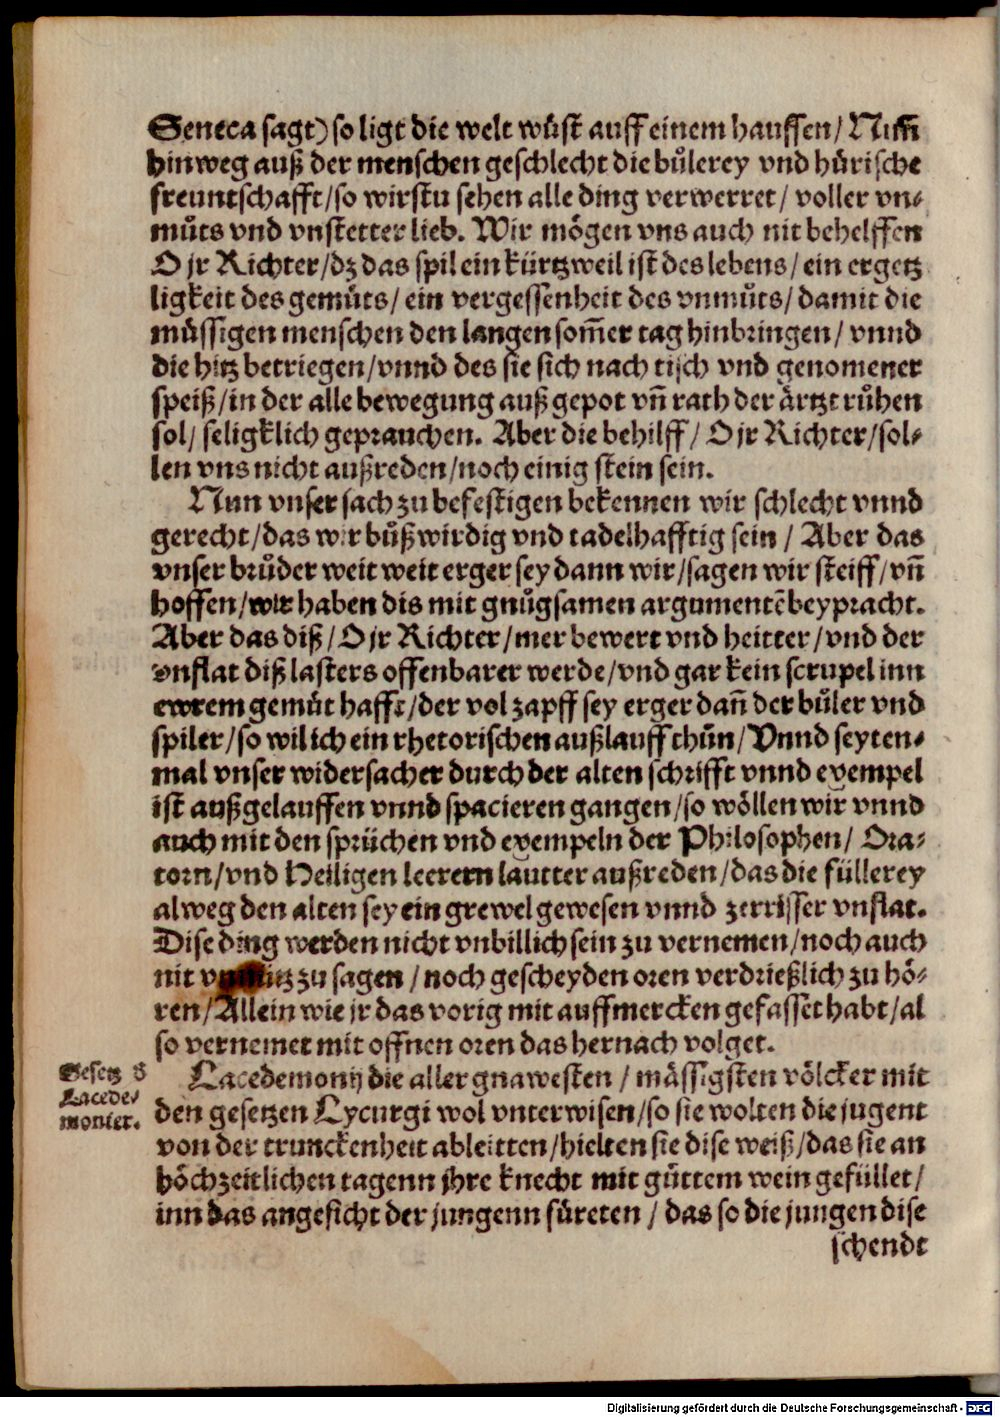 Seneca sagt) so ligt die welt wůst auff einem hauffen / Nim̃
hinweg auß der menschen geschlecht die bůlerey vnd hůrische
freuntschafft / so wirstu sehen alle ding verwerret / voller vn⸗
můts vnd vnstetter lieb. Wir mögen vns auch nit behelffen
O jr Richter / dz das spil ein kürtzweil ist des lebens / ein ergetz
ligkeit des gemůts / ein vergessenheit des vnmůts / damit die
müssigen menschen den langen som̃er tag hinbringen / vnnd
die hitz betriegen / vnnd des sie sich nach tisch vnd genomener
speiß / in der alle bewegung auß gepot vñ rath der ärtzt růhen
sol / seligklich geprauchen. Aber die behilff / O jr Richter / sol⸗
len vns nicht außreden / noch einig stein sein.
Nun vnser sach zu befestigen bekennen wir schlecht vnnd
gerecht / das wir bůßwirdig vnd tadelhafftig sein / Aber das
vnser brůder weit weit erger sey dann wir / sagen wir steiff / vñ
hoffen / wir haben dis mit gnůgsamen argumentẽ beypracht.
Aber das diß / O jr Richter / mer bewert vnd heitter / vnd der
vnflat diß lasters offenbarer werde / vnd gar kein scrupel inn
ewrem gemůt hafft / der vol zapff sey erger dañ der bůler vnd
spiler / so wil ich ein rhetorischen außlauff thůn / Vnnd seyten⸗
mal vnser widersacher durch der alten schrifft vnnd exempel
ist außgelauffen vnnd spacieren gangen / so wöllen wir vnnd
auch mit den sprüchen vnd exempeln der Philosophen / Ora⸗
torn / vnd Heiligen leerern lautter außreden / das die füllerey
alweg den alten sey ein grewel gewesen vnnd zerrisser vnflat.
Dise ding werden nicht vnbillich sein zu vernemen / noch auch
nit zu sagen / noch gescheyden oren verdrießlich zu hö⸗
ren / Allein wie jr das vorig mit auffmercken gefasset habt / al
so vernemet mit offnen oren das hernach volget.
Gesetz d̕
Lacede⸗
monier.
Lacedemonij die aller gnawesten / mässigsten völcker mit
den gesetzen Lycurgi wol vnterwisen / so sie wolten die jugent
von der trunckenheit ableitten / hielten sie dise weiß / das sie an
höchzeitlichen tagenn jhre knecht mit gůttem wein gefüllet /
inn das angesicht der jungenn füreten / das so die jungen dise
schendt
Digitalisierung gefördert durch die Deutsche Forschungsgemeinschaft - DFG